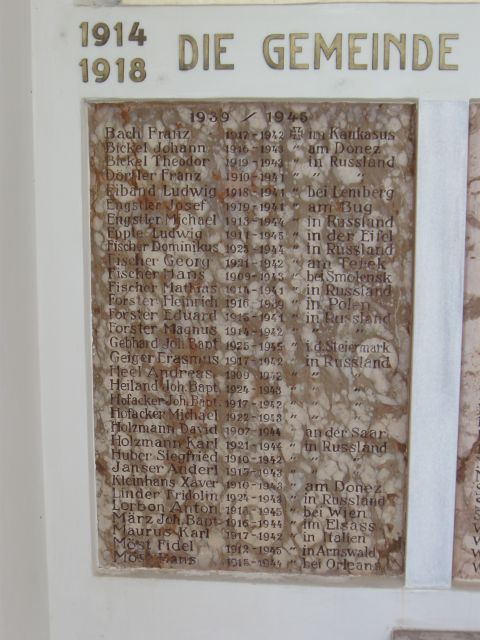 1914
1918
DIE GEMEINDE
1939 / 1945
Bach Franz 1917-1942 ✠ im Kaukasus
Bickel Johann 1916-1943 " am Donez
Bickel Theodor 1919-1943 " in Russland
Dörfler Franz 1910-1941 " "
Eiband Ludwig 1918-1941 " bei Lemberg
Engstler Josef 1919-1941 " am Bug
Engstler Michael 1913-1944 " in Russland
Epple Ludwig 1911-1945 " in der Eifel
Fischer Dominikus 1925-1944 " in Russland
Fischer Georg 1921-1942 " am Terek
Fischer Hans 1909-1943 " bei Smolensk
Fischer Mathias 1914-1941 " in Russland
Forster Heinrich 1916-1939 " in Polen
Forster Eduard 1915-1941 " in Russland
Forster Magnus 1914-1942 " "
Gebhard Joh. Bapt 1925-1945 " i.d. Steiermark
Geiger Erasmus 1917-1942 " in Russland
Heel Andreas 1909-1942 " "
Heiland Joh. Bapt 1924-1943 " "
Hofacker Joh. Bapt. 1917-1942 " "
Hofacker Michael 1922-1943 " "
Holzmann David 1907-1944 " an der Saar
Holzmann Karl 1921-1944 " in Russland
Huber Siegfried 1910-1942 " "
Janser Anderl 1915-1943 " "
Kleinhans Xaver 1910-1943 " am Donez
Linder Fridolin 1924-1943 " in Russland
Lorbon Anton 1913-1945 " bei Wien
März Joh. Bapt 1916-1944 " im Elsass
Maurus Karl 1917-1942 " in Italien
Möst Fidel 1912-1945 " in Arnswald
Möst Hans 1915-1944 " bei Orleans